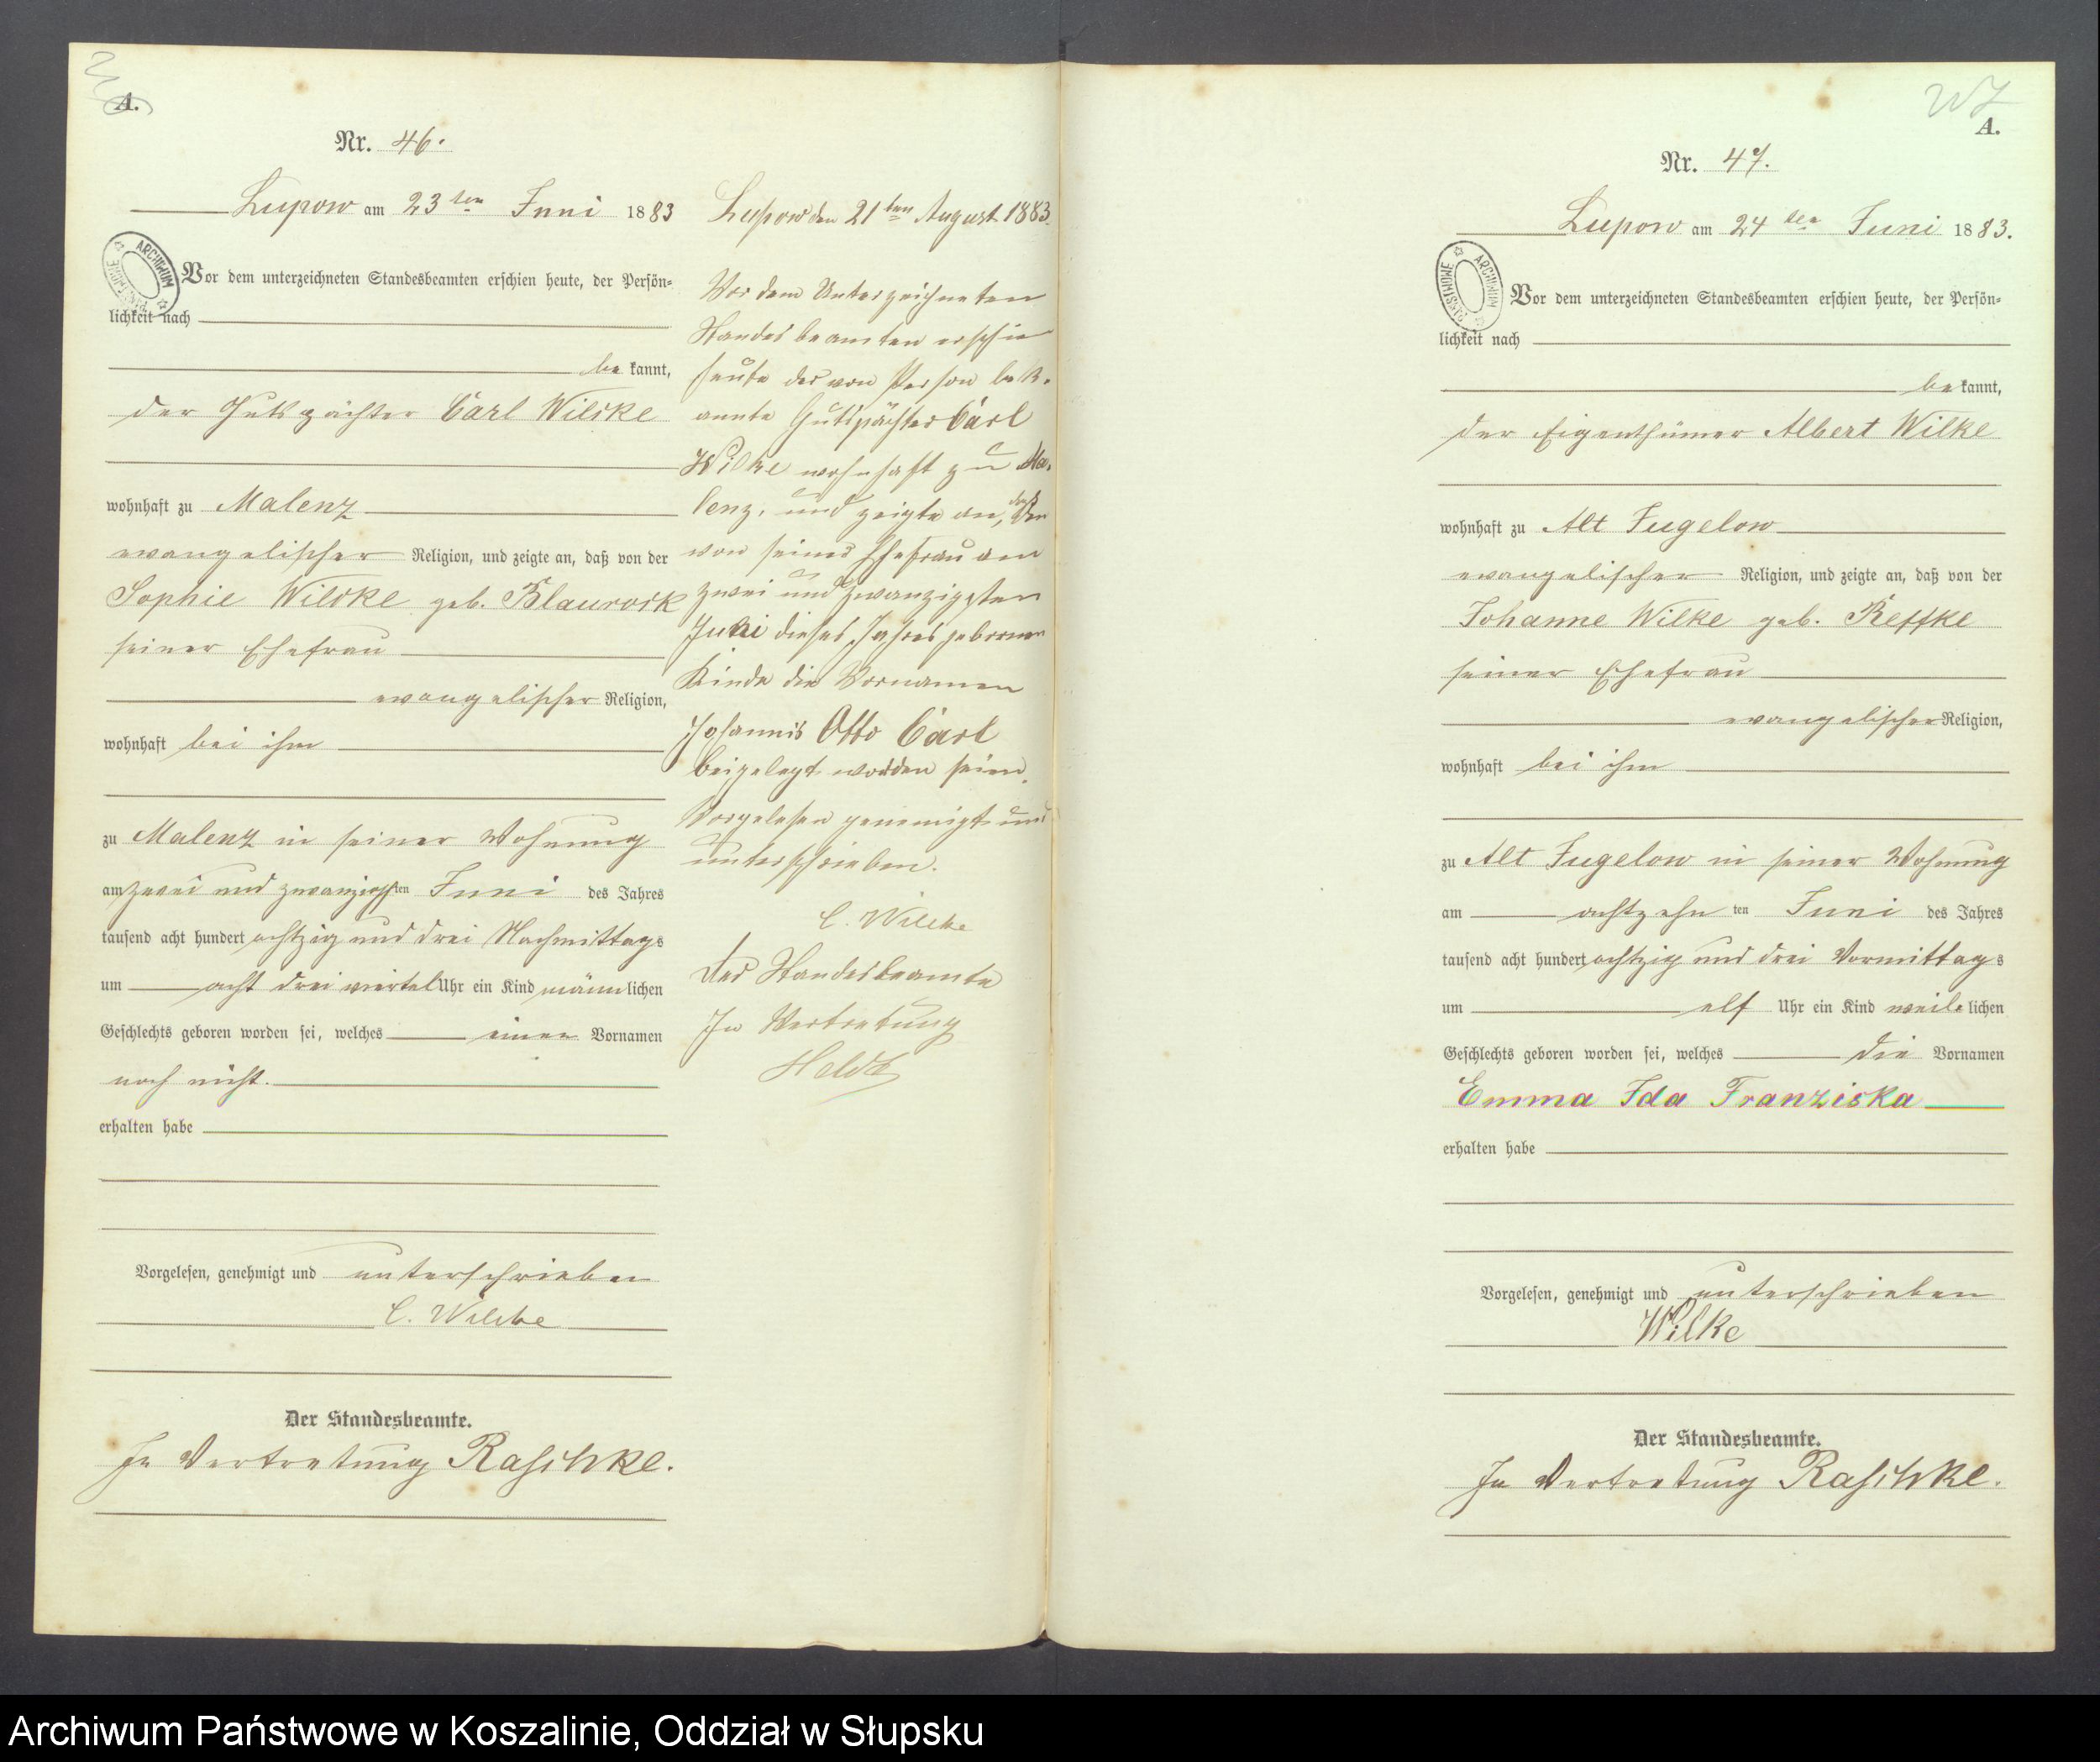 A.
Nr. 46.
Lupow am 23ten Juni 1883
ARCHIWUM PAŃSTWOWE
Vor dem unterzeichneten Standesbeamten erschien heute, der Persön-
lichkeit nach
be kannt,
der Gutspächter Carl Wilcke
wohnhaft zu Malenz
evangelischer Religion, und zeigte an, daß von der
Sophie Wilcke geb. Blaurock
seiner Ehefrau
evangelischer Religion,
wohnhaft bei ihm
zu Malenz in seiner Wohnung
am zwei und zwanzigsten Juni des Jahres
tausend acht hundert achtzig und drei Nachmittags
um acht drei viertel Uhr ein Kind männlichen
Geschlechts geboren worden sei, welches einen Vornamen
noch nicht.
erhalten habe
Vorgelesen, genehmigt und unterschrieben
C. Wilcke
Der Standesbeamte.
In Vertretung Raschke.
Lupow den 21ten August 1883.
Vor dem Unterzeichneten
Standesbeamten erschien
heute der von Person bek.
annte Gutspächter Carl
Wilke wohnhaft zu Ma.
lenz, und zeigte an, daß den
von seiner Ehefrau am
zwei und zwanzigsten
Juni dieses Jahres geborenen
Kinde die Vornamen
Johannis Otto Carl
beigelegt worden seien.
Vorgelesen genemigt und
unterschrieben.
C. Wilcke
Der Standesbeamte
In Vertretung
Heldt
27
A.
Nr. 47.
Lupow am 24ten Juni 1883.
ARCHIWUM PAŃSTWOWE
Vor dem unterzeichneten Standesbeamten erschien heute, der Persön-
lichkeit nach
be kannt,
der Eigenthümer Albert Wilke
wohnhaft zu Alt Jugelow
evangelischer Religion, und zeigte an, daß von der
Johanne Wilke geb. Reffke
seiner Ehefrau
evangelischer Religion,
wohnhaft bei ihm
zu Alt Jugelow in seiner Wohnung
am achtzehn ten Juni des Jahres
tausend acht hundert achtzig und drei Vormittags
um elf Uhr ein Kind weiblichen
Geschlechts geboren worden sei, welches die Vornamen
Emma Ida Franziska
erhalten habe
Vorgelesen, genehmigt und unterschrieben
Wilke
Der Standesbeamte.
In Vertretung Raschke.
Archiwum Państwowe w Koszalinie, Oddział w Słupsku